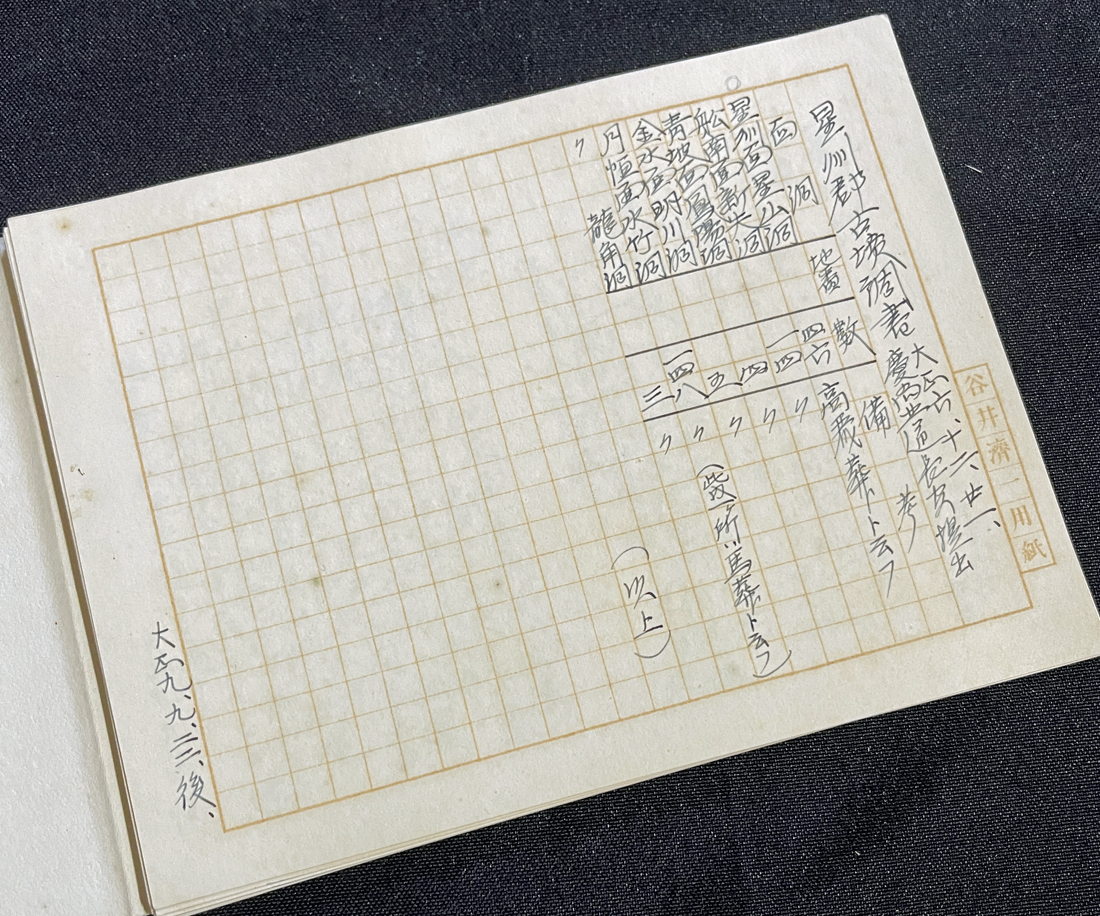 谷井濟一用紙
星州郡古墳調書 大正六、十二、廿一、
慶尚北道長官提出
面 洞 數 備考
星州面星山洞 四六 高麗葬ト云フ
船南面新夫洞 一四四 〃
青坡面鳳陽洞 四 〃
金水面明川洞 五 〃 (此一所ハ馬葬ト云フ)
月恒面水竹洞 一四八 〃
〃 龍角洞 三 〃
(以上)
大正九、九、二三、後、